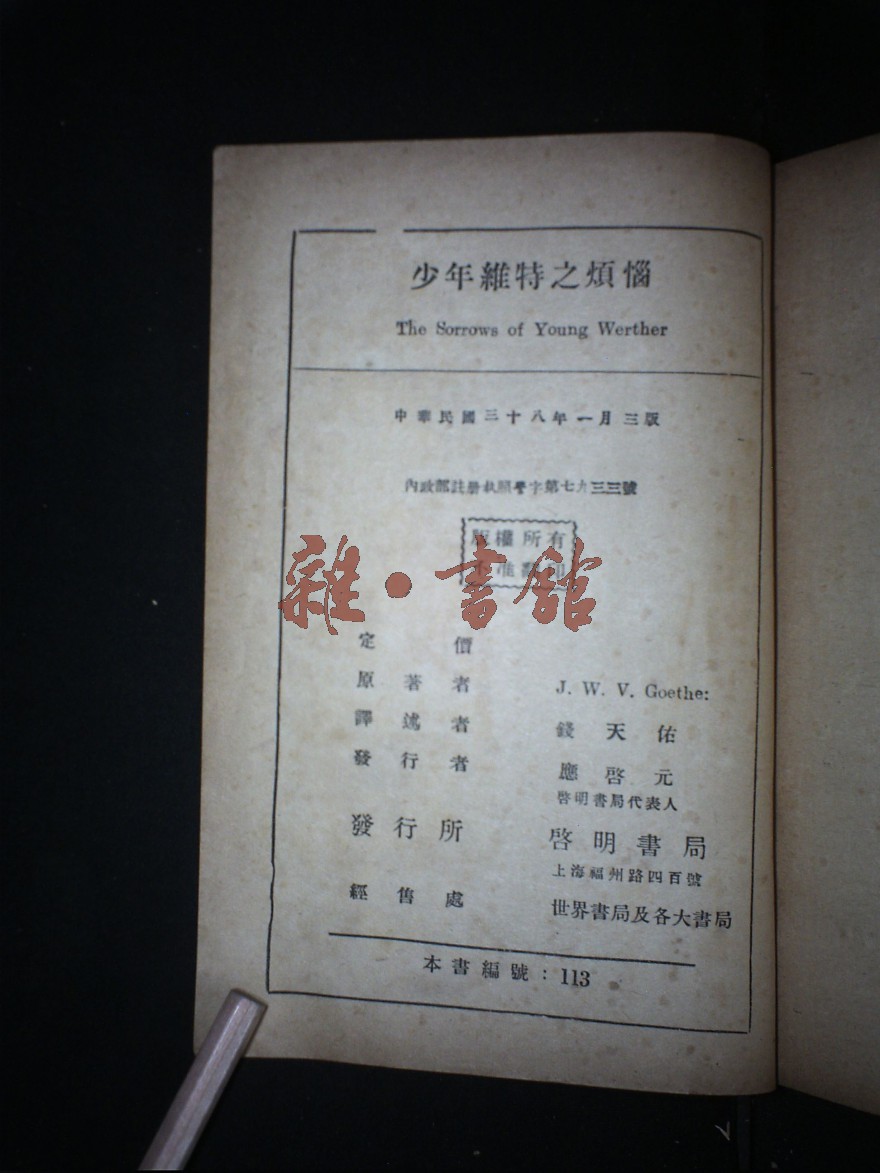 少年維特之煩惱
The Sorrows of Young Werther
中華民國三十八年一月三版
內政部註册執照警字第七九三三號
版權所有
不准翻印
雜·書館
定價
原著者 J. W. V. Goethe:
譯述者 錢天佑
發行者 應啓元
啓明書局代表人
發行所 啓明書局
上海福州路四百號
經售處 世界書局及各大書局
本書編號：113